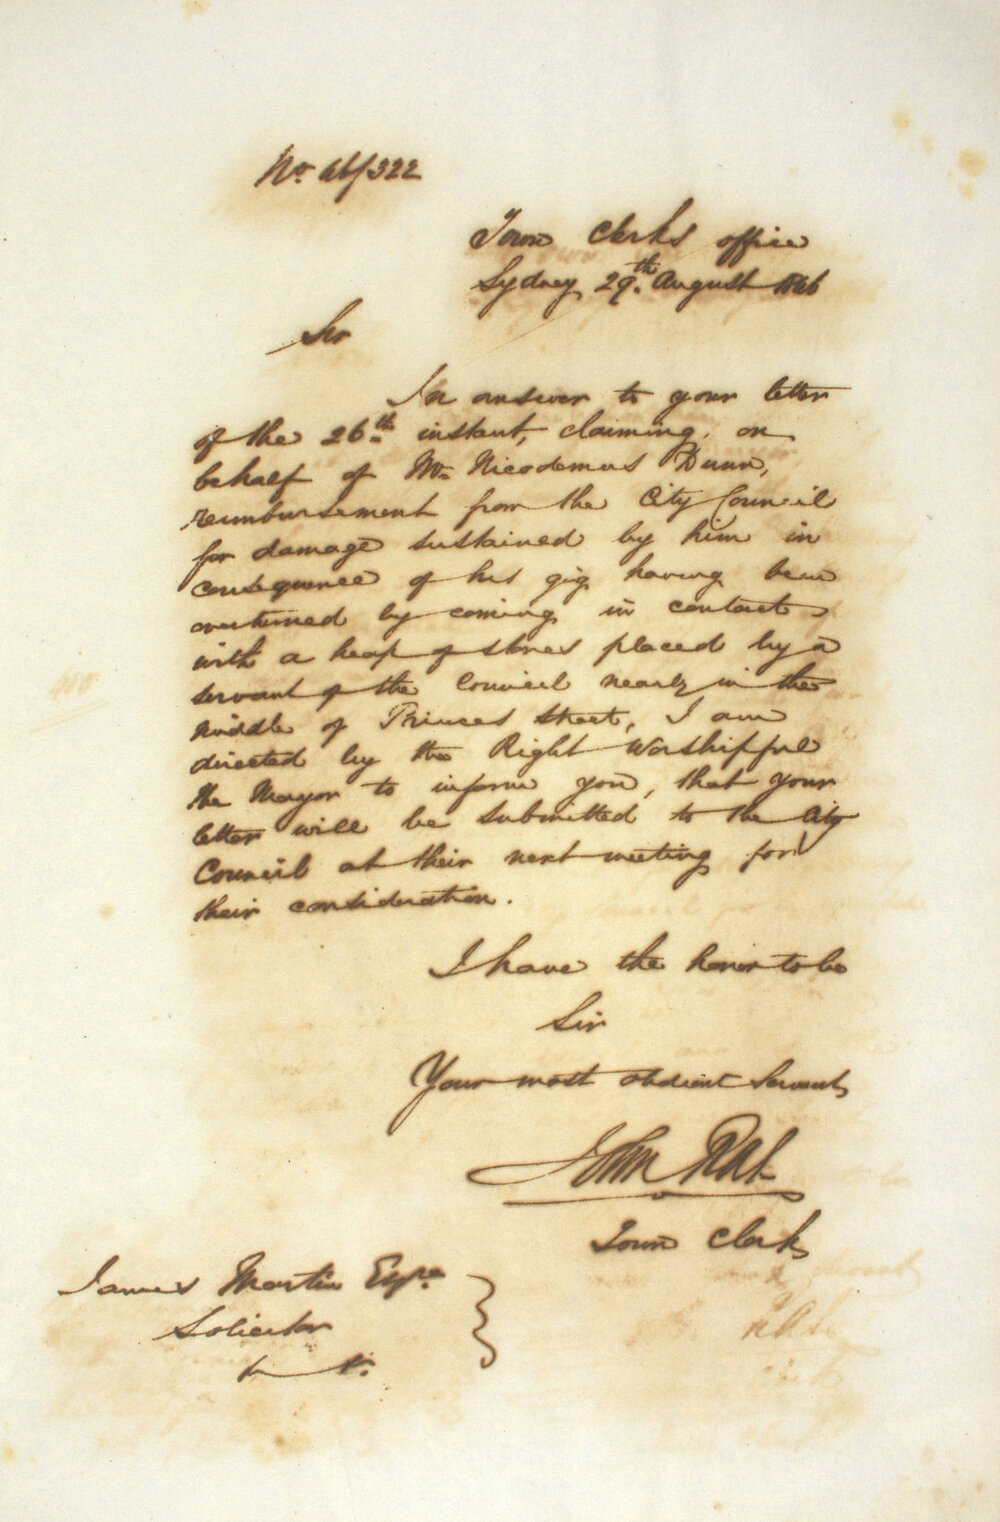 No. 46/322
Town Clerks office
Sydney 29th. August 1846
Sir
In answer to your letter
of the 26th instant, claiming, on
behalf of Mr. Nicodemus Dunn,
reimbursement from the City Council
for damage sustained by him in
consequence of his gig having been
overturned by coming in contact
with a heap of stones placed by a
servant of the Council nearly in the
middle of Princes Street, I am
directed by the Right Worshipful
the Mayor to inform you, that your
letter will be submitted to the City
Council at their next meeting for
their consideration.
I have the honor to be
Sir
Your most obedient Servant,
John Rae
Town Clerk
James Martin Esqre.
Solicitor